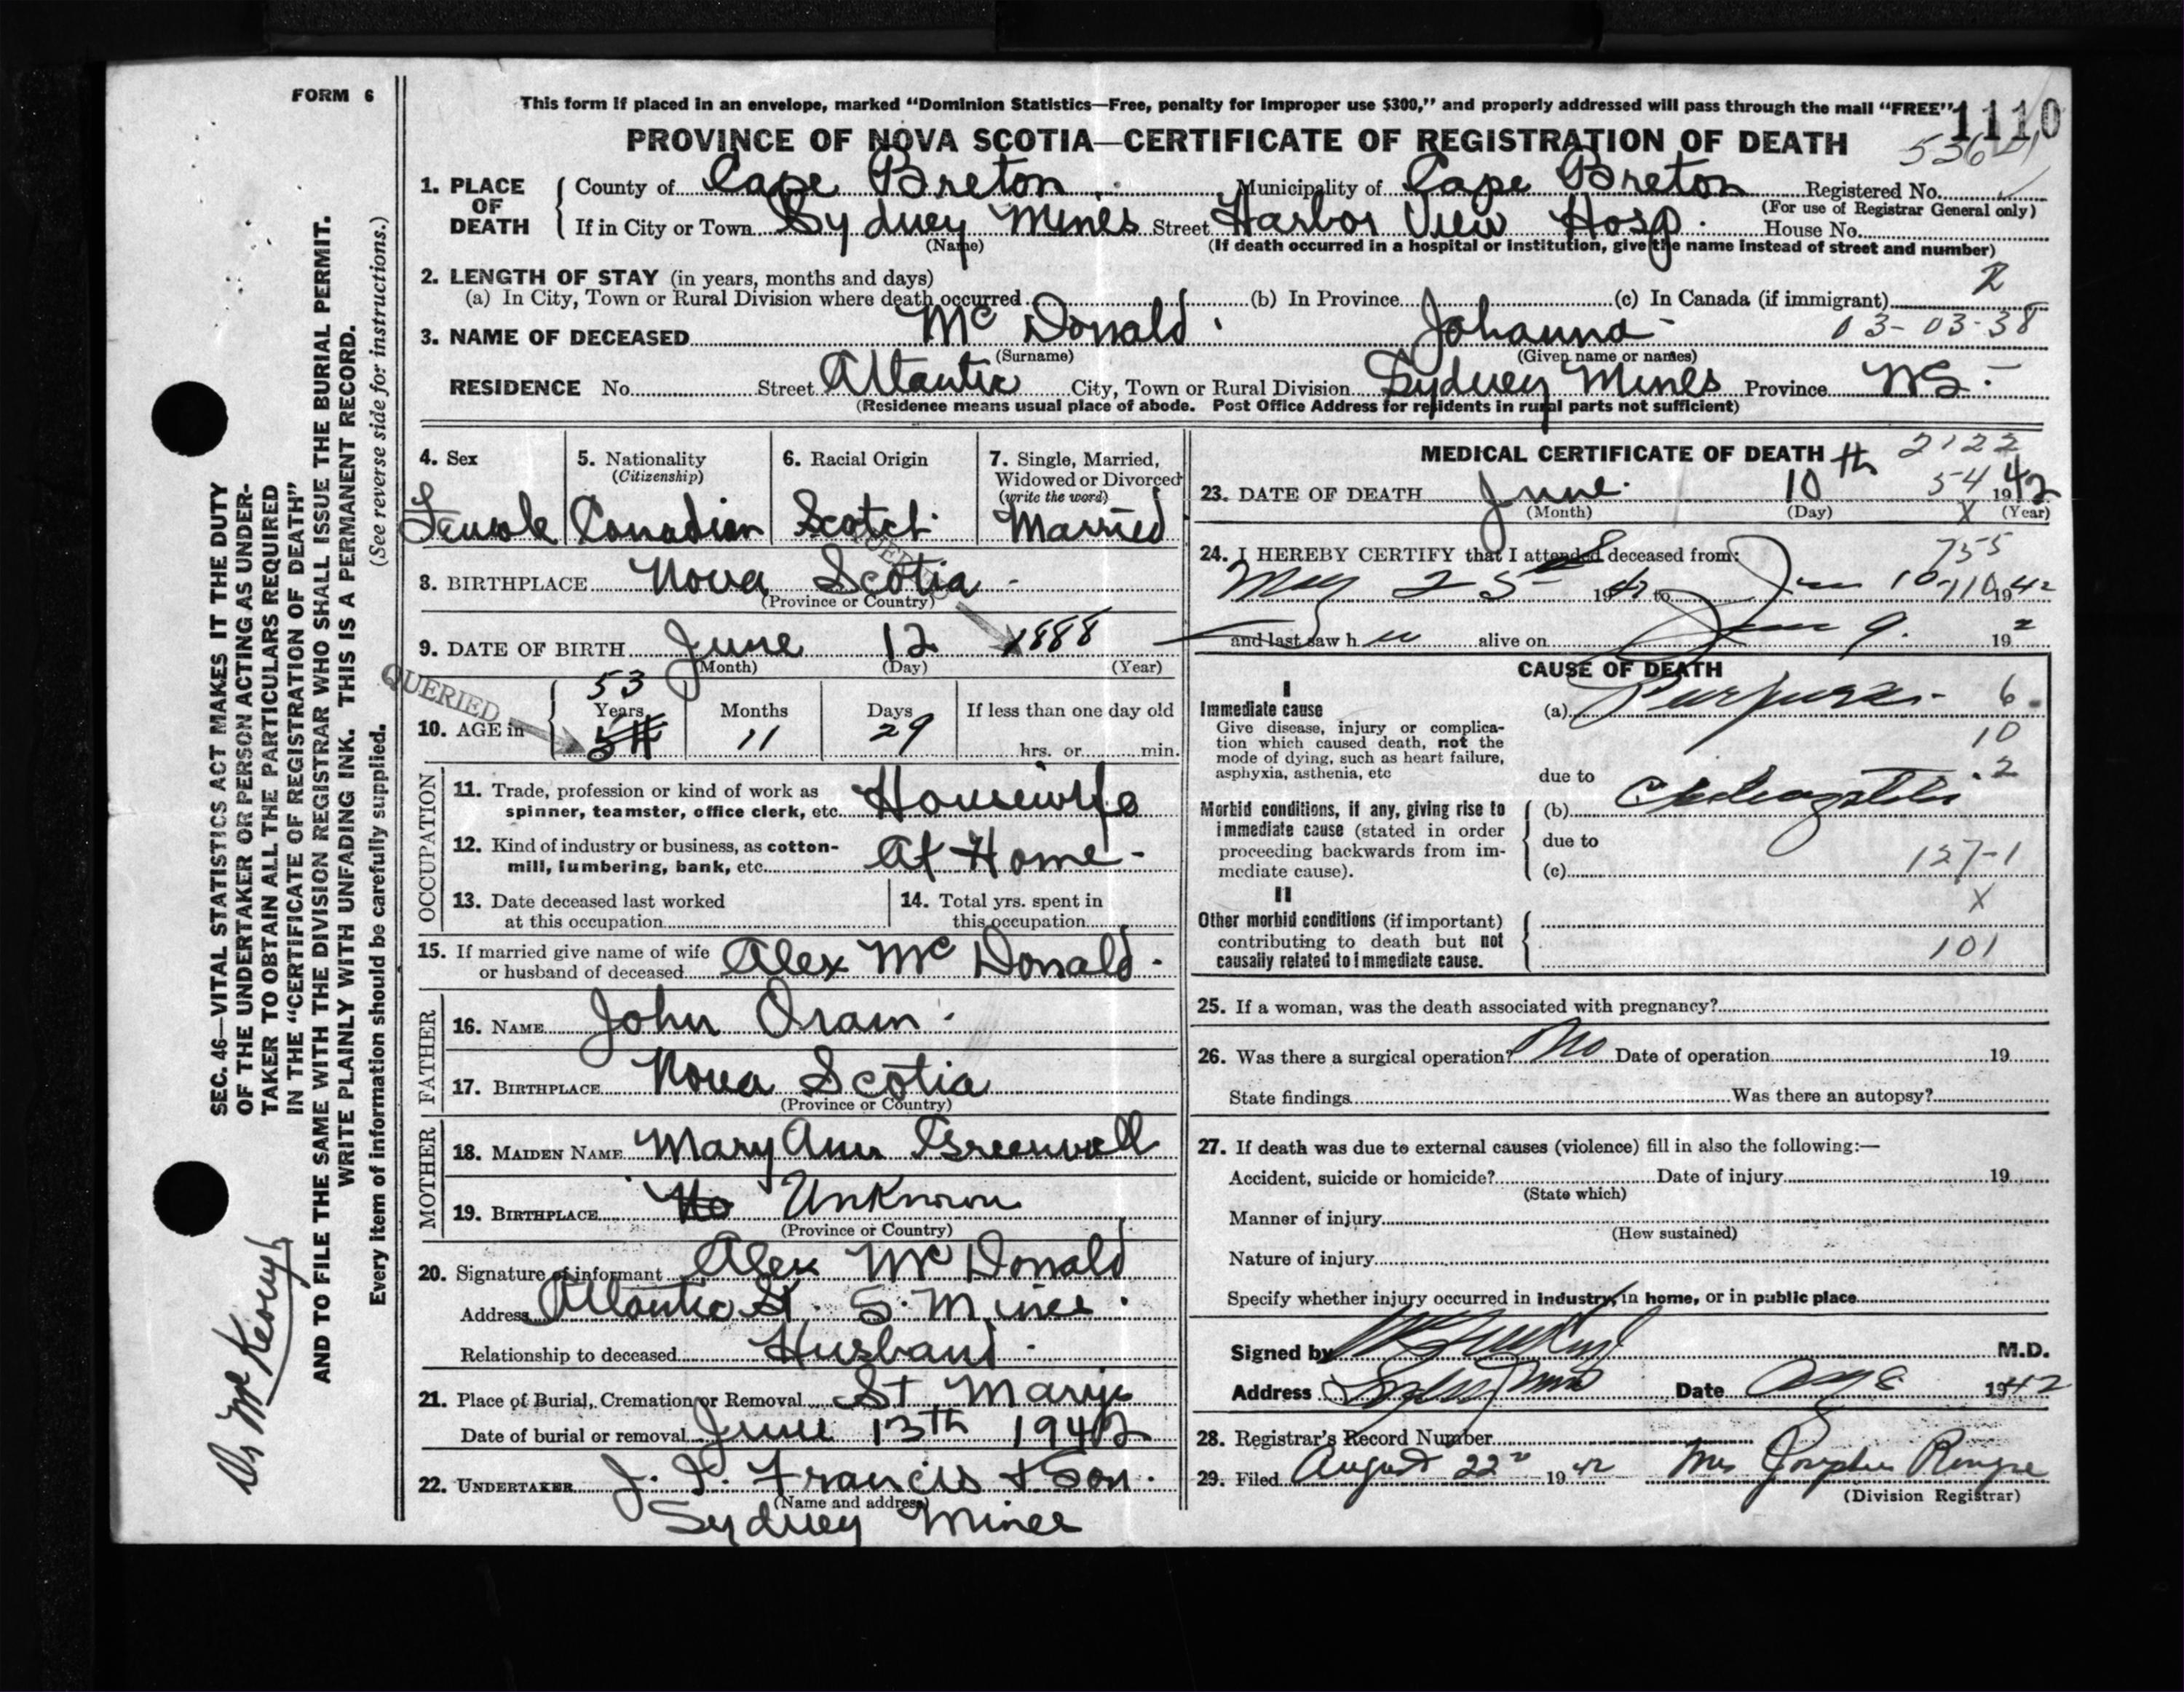 FORM 6
This form if placed in an envelope, marked “Dominion Statistics—Free, penalty for improper use $300,” and properly addressed will pass through the mail “FREE”
1110
PROVINCE OF NOVA SCOTIA—CERTIFICATE OF REGISTRATION OF DEATH
1. PLACE OF DEATH
County of Cape Breton Municipality of Cape Breton Registered No.
(For use of Registrar General only)
If in City or Town Sydney Mines Street Harbor View Hosp. House No.
(Name) (If death occurred in a hospital or institution, give the name instead of street and number)
2. LENGTH OF STAY (in years, months and days)
2
(a) In City, Town or Rural Division where death occurred (b) In Province (c) In Canada (if immigrant)
3. NAME OF DECEASED Mc Donald Johanna 03-03-38
(Surname) (Given name or names)
RESIDENCE No. Street Atlantic City, Town or Rural Division Sydney Mines Province NS.
(Residence means usual place of abode. Post Office Address for residents in rural parts not sufficient)
4. Sex 5. Nationality (Citizenship) 6. Racial Origin 7. Single, Married, Widowed or Divorced (write the word)
Female Canadian Scotch Married
QUERIED
8. BIRTHPLACE Nova Scotia
(Province or Country)
9. DATE OF BIRTH June 12 1888
(Month) (Day) (Year)
QUERIED
53
10. AGE in Years Months Days If less than one day old
54 11 29 hrs. or min.
OCCUPATION
11. Trade, profession or kind of work as spinner, teamster, office clerk, etc. Housewife
12. Kind of industry or business, as cotton-mill, lumbering, bank, etc. At Home
13. Date deceased last worked at this occupation
14. Total yrs. spent in this occupation
15. If married give name of wife or husband of deceased Alex Mc Donald
FATHER
16. NAME John Oram
17. BIRTHPLACE Nova Scotia
(Province or Country)
MOTHER
18. MAIDEN NAME Mary Ann Greenwell
19. BIRTHPLACE No Unknown
(Province or Country)
20. Signature of informant Alex Mc Donald
Address Atlantic St. S. Mines
Relationship to deceased Husband
21. Place of Burial, Cremation or Removal St Marys
Date of burial or removal June 13th 1942
22. UNDERTAKER J. J. Francis & Son.
(Name and address)
Sydney Mines
MEDICAL CERTIFICATE OF DEATH
2122
23. DATE OF DEATH June 10 th 54 1942
(Month) (Day) X (Year)
24. I HEREBY CERTIFY that I attended deceased from: 755
May 25 19 to June 10 1942
and last saw h alive on June 9. 192
CAUSE OF DEATH
I
Immediate cause (a) Purpura 6
Give disease, injury or complication which caused death, not the mode of dying, such as heart failure, asphyxia, asthenia, etc
10
due to 2
Morbid conditions, if any, giving rise to immediate cause (stated in order proceeding backwards from immediate cause).
(b)
due to
(c) 127-1
II X
Other morbid conditions (if important) contributing to death but not causally related to immediate cause.
101
25. If a woman, was the death associated with pregnancy?
26. Was there a surgical operation? No Date of operation 19
State findings Was there an autopsy?
27. If death was due to external causes (violence) fill in also the following:—
Accident, suicide or homicide? Date of injury 19
(State which)
Manner of injury
(How sustained)
Nature of injury
Specify whether injury occurred in industry, in home, or in public place
Signed by M.D.
Address Sydney Mines Date Aug 8 1942
28. Registrar's Record Number
29. Filed August 22 1942 Mrs Josephine
(Division Registrar)
SEC. 46—VITAL STATISTICS ACT MAKES IT THE DUTY
OF THE UNDERTAKER OR PERSON ACTING AS UNDER-
TAKER TO OBTAIN ALL THE PARTICULARS REQUIRED
IN THE “CERTIFICATE OF REGISTRATION OF DEATH”
AND TO FILE THE SAME WITH THE DIVISION REGISTRAR WHO SHALL ISSUE THE BURIAL PERMIT.
WRITE PLAINLY WITH UNFADING INK. THIS IS A PERMANENT RECORD.
Every item of information should be carefully supplied. (See reverse side for instructions.)
Dr McKeough